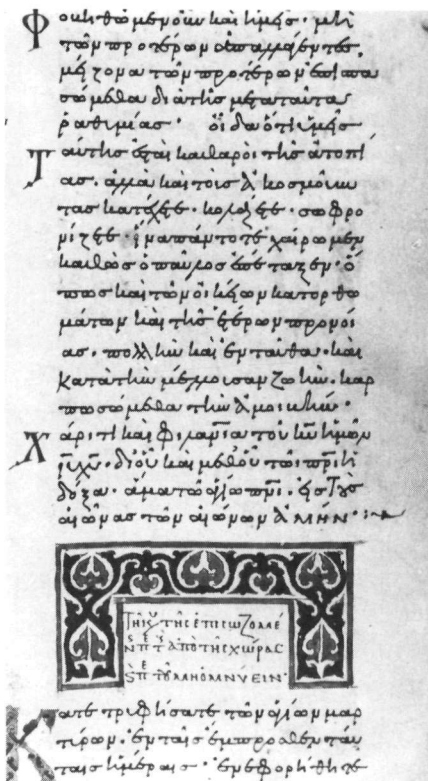 Φοβηθῶμεν οὖν καὶ ἡμεῖς· μὴ
τῶν προτέρων ἀπαλλαγέντες
μείζονα τῶν προτέρων ἐπισπα
σώμεθα διὰ τῆς μετὰ ταῦτα
ῥαθυμίας· οἶδα ὅτι ὑμεῖς
Ταύτης ἐστὲ καθαροὶ τῆς ἀτοπί
ας· ἀλλὰ καὶ τοὺς ἀκοσμοῦν
τας κατέχετε· κολάζετε· σωφρο
νίζετε· ἵνα πάντοτε χαίρωμεν
καθὼς ὁ παῦλος ἐπέταξεν· ὅ
πως καὶ τῶν οἰκείων κατορθω
μάτων καὶ τῆς ἑτέρων προνοί
ας· πολλὴν καὶ ἐνταῦθα· καὶ
κατὰ τὴν μέλλουσαν ζωὴν· καρ
πωσώμεθα τὴν ἀμοιβήν·
Χάριτι καὶ φιλανίᾳ τοῦ κυ ἡμῶν
ιυ χυ· δι' οὗ καὶ μεθ' οὗ τῶ πρι ἡ
δόξα· ἅμα τῶ ἁγίω πνι· εἰς τοὺς
αἰῶνας τῶν αἰώνων ἀμήν·
Τῆ κυ τῆς ἐπισωζομέ
ἀπὸ τῆς χώρας
τοῦ μὴ ὀμνύειν·
Κατετρυφήσατε τῶν ἁγίων μαρ
τύρων· ἐν ταῖς ἔμπροσθεν ταύ
ταις ἡμέραις· ἐνεφορήθητε